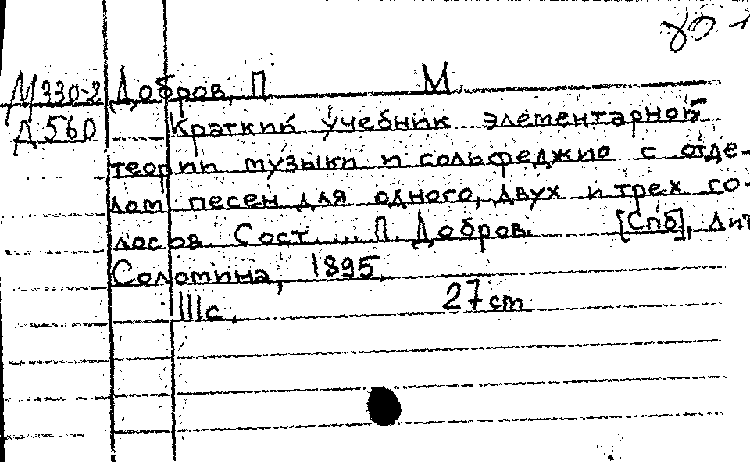 М 330-2 Добров, П. М.
Д 560 Краткий учебник элементарной
теории музыки и сольфеджио с отде-
лом песен для одного, двух и трех го-
лосов. Сост. ... П. Добров. [Спб], Лит
Соломина, 1895.
111с. 27 cm